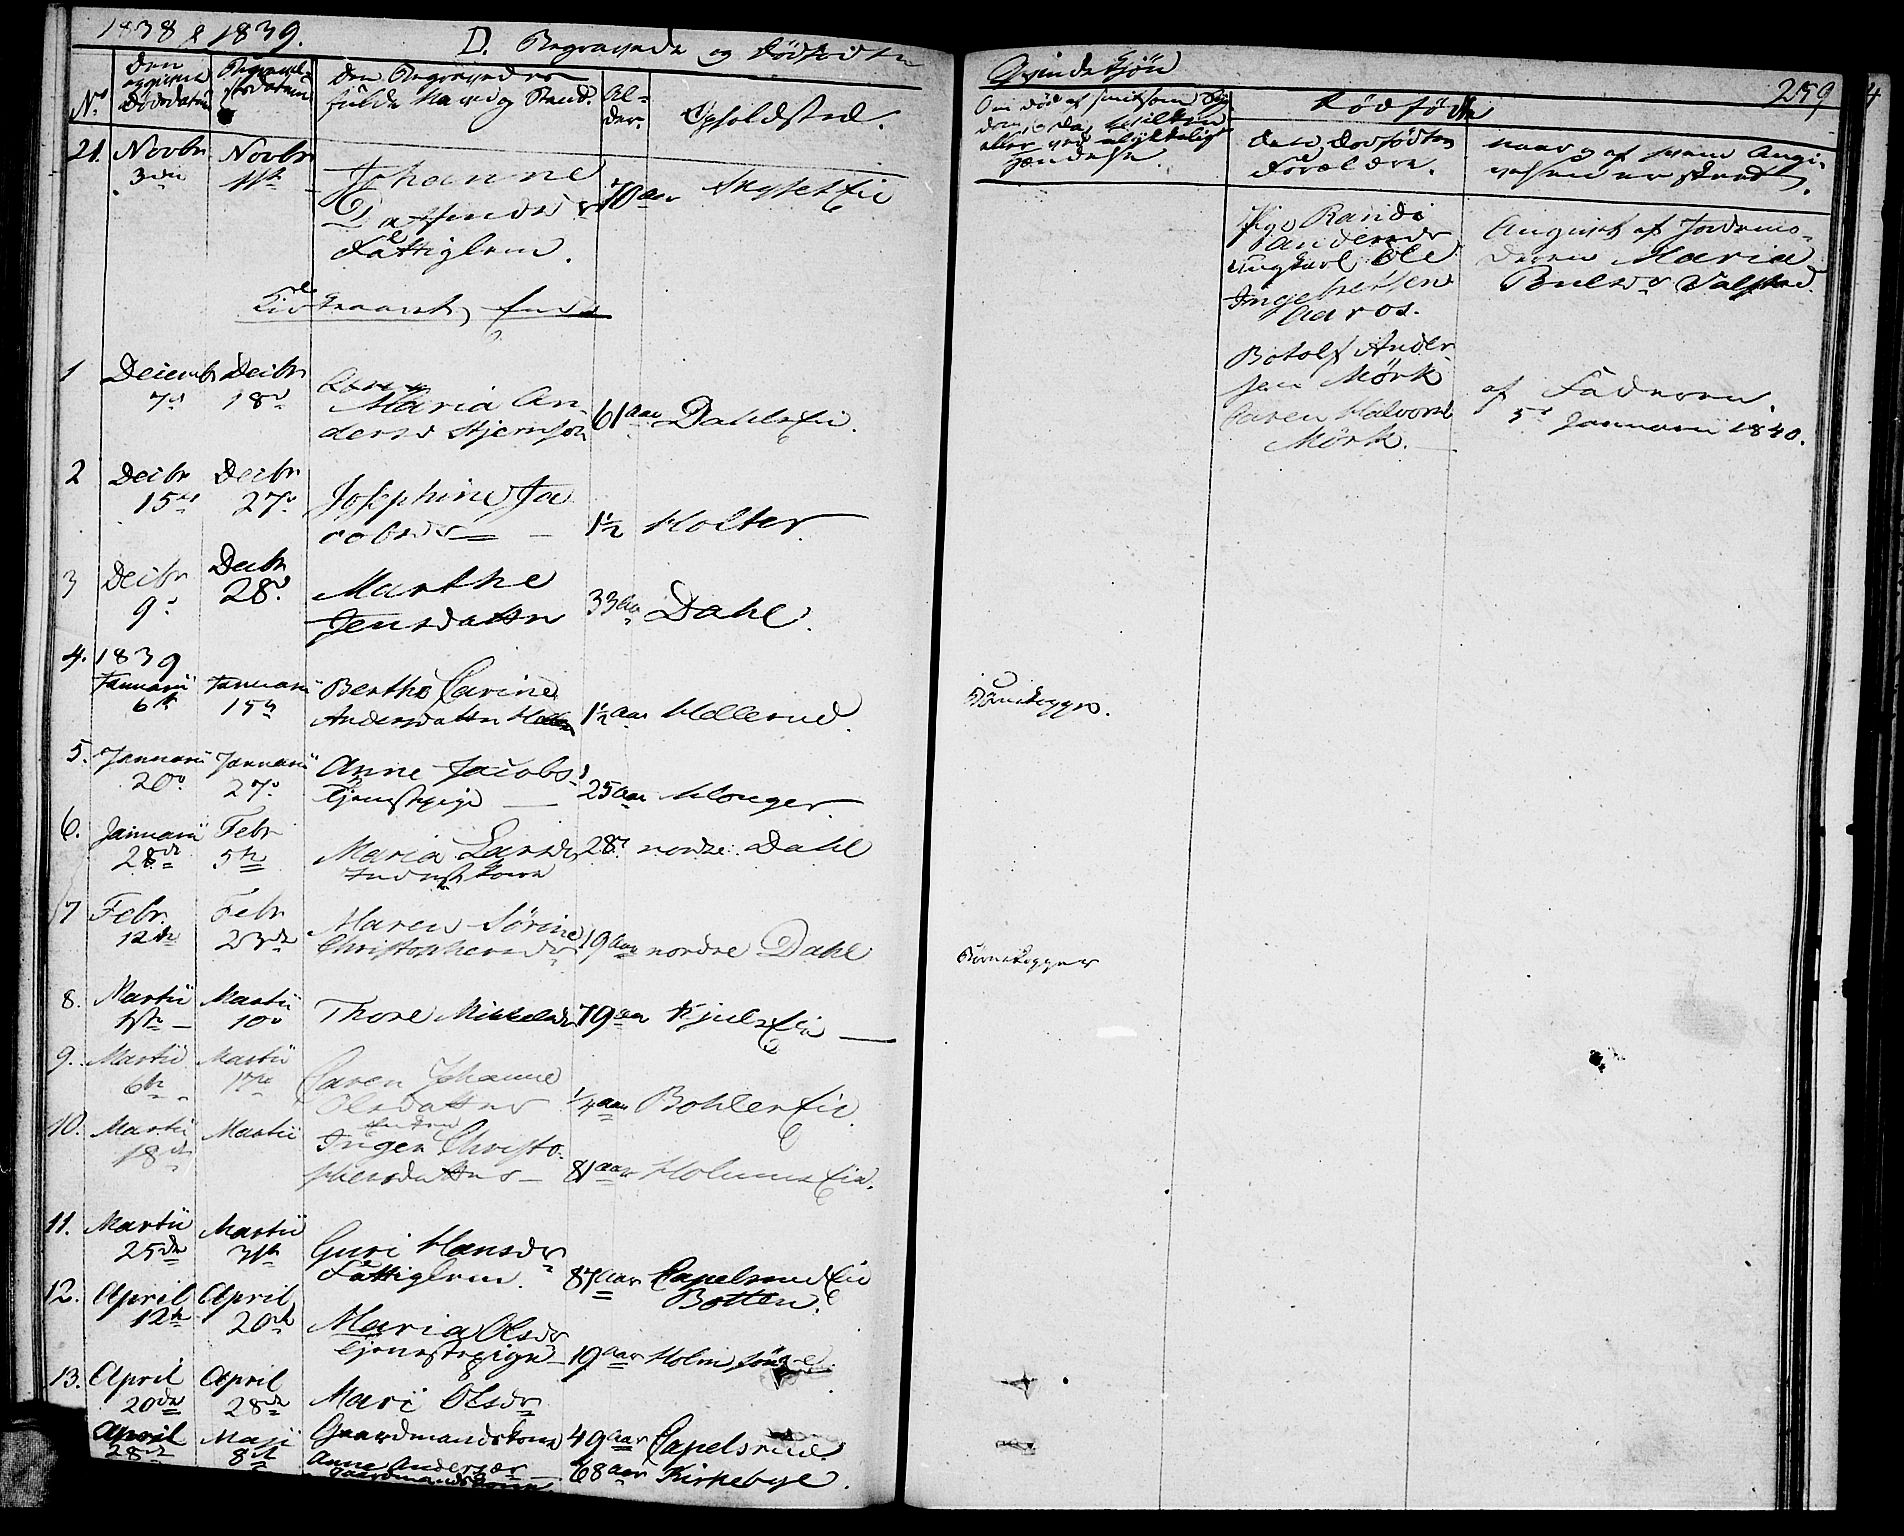 1838 & 1839.
D. Begravede og Dødfødte
Qvindekjön
259
No
Den angivne Dödsdatum
Begravelsesdatum
Den Begravedes fulde Navn og Stand.
Alder.
Opholdsted.
Dödfödte
Dets, Dødfødtes Forældre.
naar og af hvem Angivelsen er skeedt.
21. Novbr 3die Novbr 11te Johanne
Fattiglem.
70 aar
Kirkeaarets Ende
Pige Randi
Andersdr
Ungkarl Ole
Ingebretsen
Aaros.
Angivet af Jordemo-
deren Maria
1 Decembr 7d Decbr 18d
Maria An-
dersd Stjernson 61 aar Dahls Eie.
Botolf Ander
sen Mörk
Caren Halvorsd
Mörk.
af Faderen.
5t Januarii 1840.
2 Decbr 15de Decbr 27d Josephine Ja
cobsdr 1½ Holter.
3 Decbr 9d Decbr 28d Marthe
Jensdatter 33 aar Dahl.
4. 1839
Januarii 6te Januarii 15de Berthe Carine
Andersdatter 1½ aar Hellerud.
Börnekopper.
5. Januarii 20d Januarii 27d Anne Jacobsd
Tjenestepige 25 aar Klonger
6. Januarii 28de Febr 5te Maria Larsdr 28 nordre Dahl
Inderstkone
7 Febr. 12te Febr 23de Maren Sörine
Christophersdr 19 aar nordre Dahl
Börnekopper
8. Martii 1ste Martii 10d Thore Mikkelsdr 79 aar Kjuls Eie
9. Martii 6te Martii 17de Caren Johanne
Olsdatter ¼ aar Bohler Eie
10. Martii 18de Martii
Inger Christo-
phersdatter 81 aar Holms Eie.
11. Martii 25de Martii 31te Guri Hansdr
Fattiglem. 87 aar Capelsrud Eie
Botten.
12. April 12te April 20de Maria Olsdr
Tjenestepige 19 aar Holm söndre
13. April 20de April 28de Mari Olsdr
Gaardmandskone 49 aar Capelsrud.
April 28de Maji 8de Anne Andersdr
Gaardmandskone 68 aar Kirkebye.